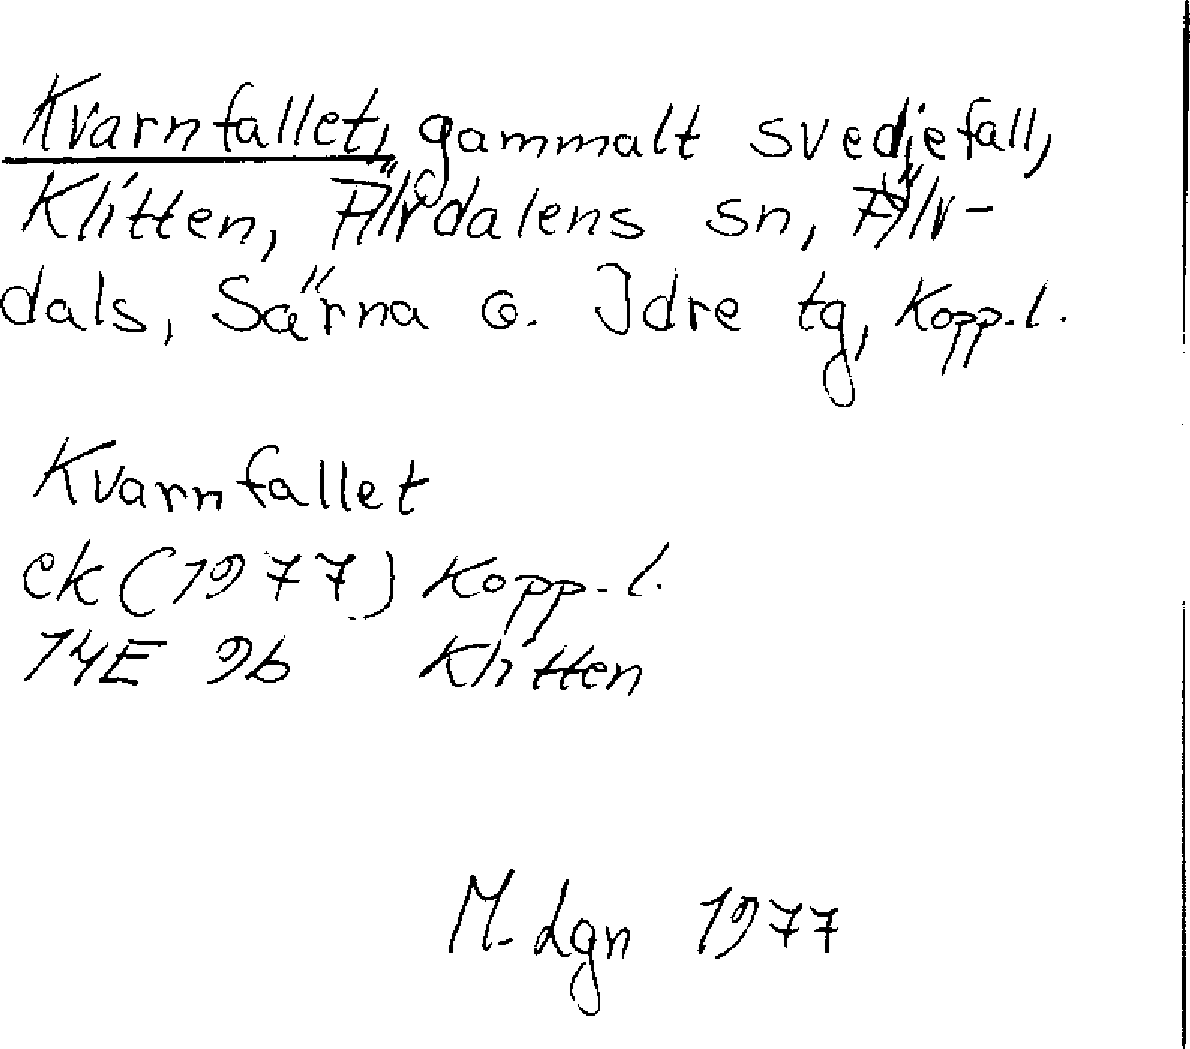 Kvarnfallet, gammalt svedjefall,
Klitten, Älvdalens sn, Älv-
dals, Särna o. Idre tg, Kopp.l.
Kvarnfallet
ek (1977) Kopp.l.
14E 9b Klitten
M. Lgn 1977